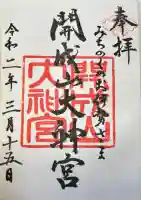 奉拝
みちのくのお伊勢さま
開成山大神宮
開成山大神宮
令和二年三月十五日